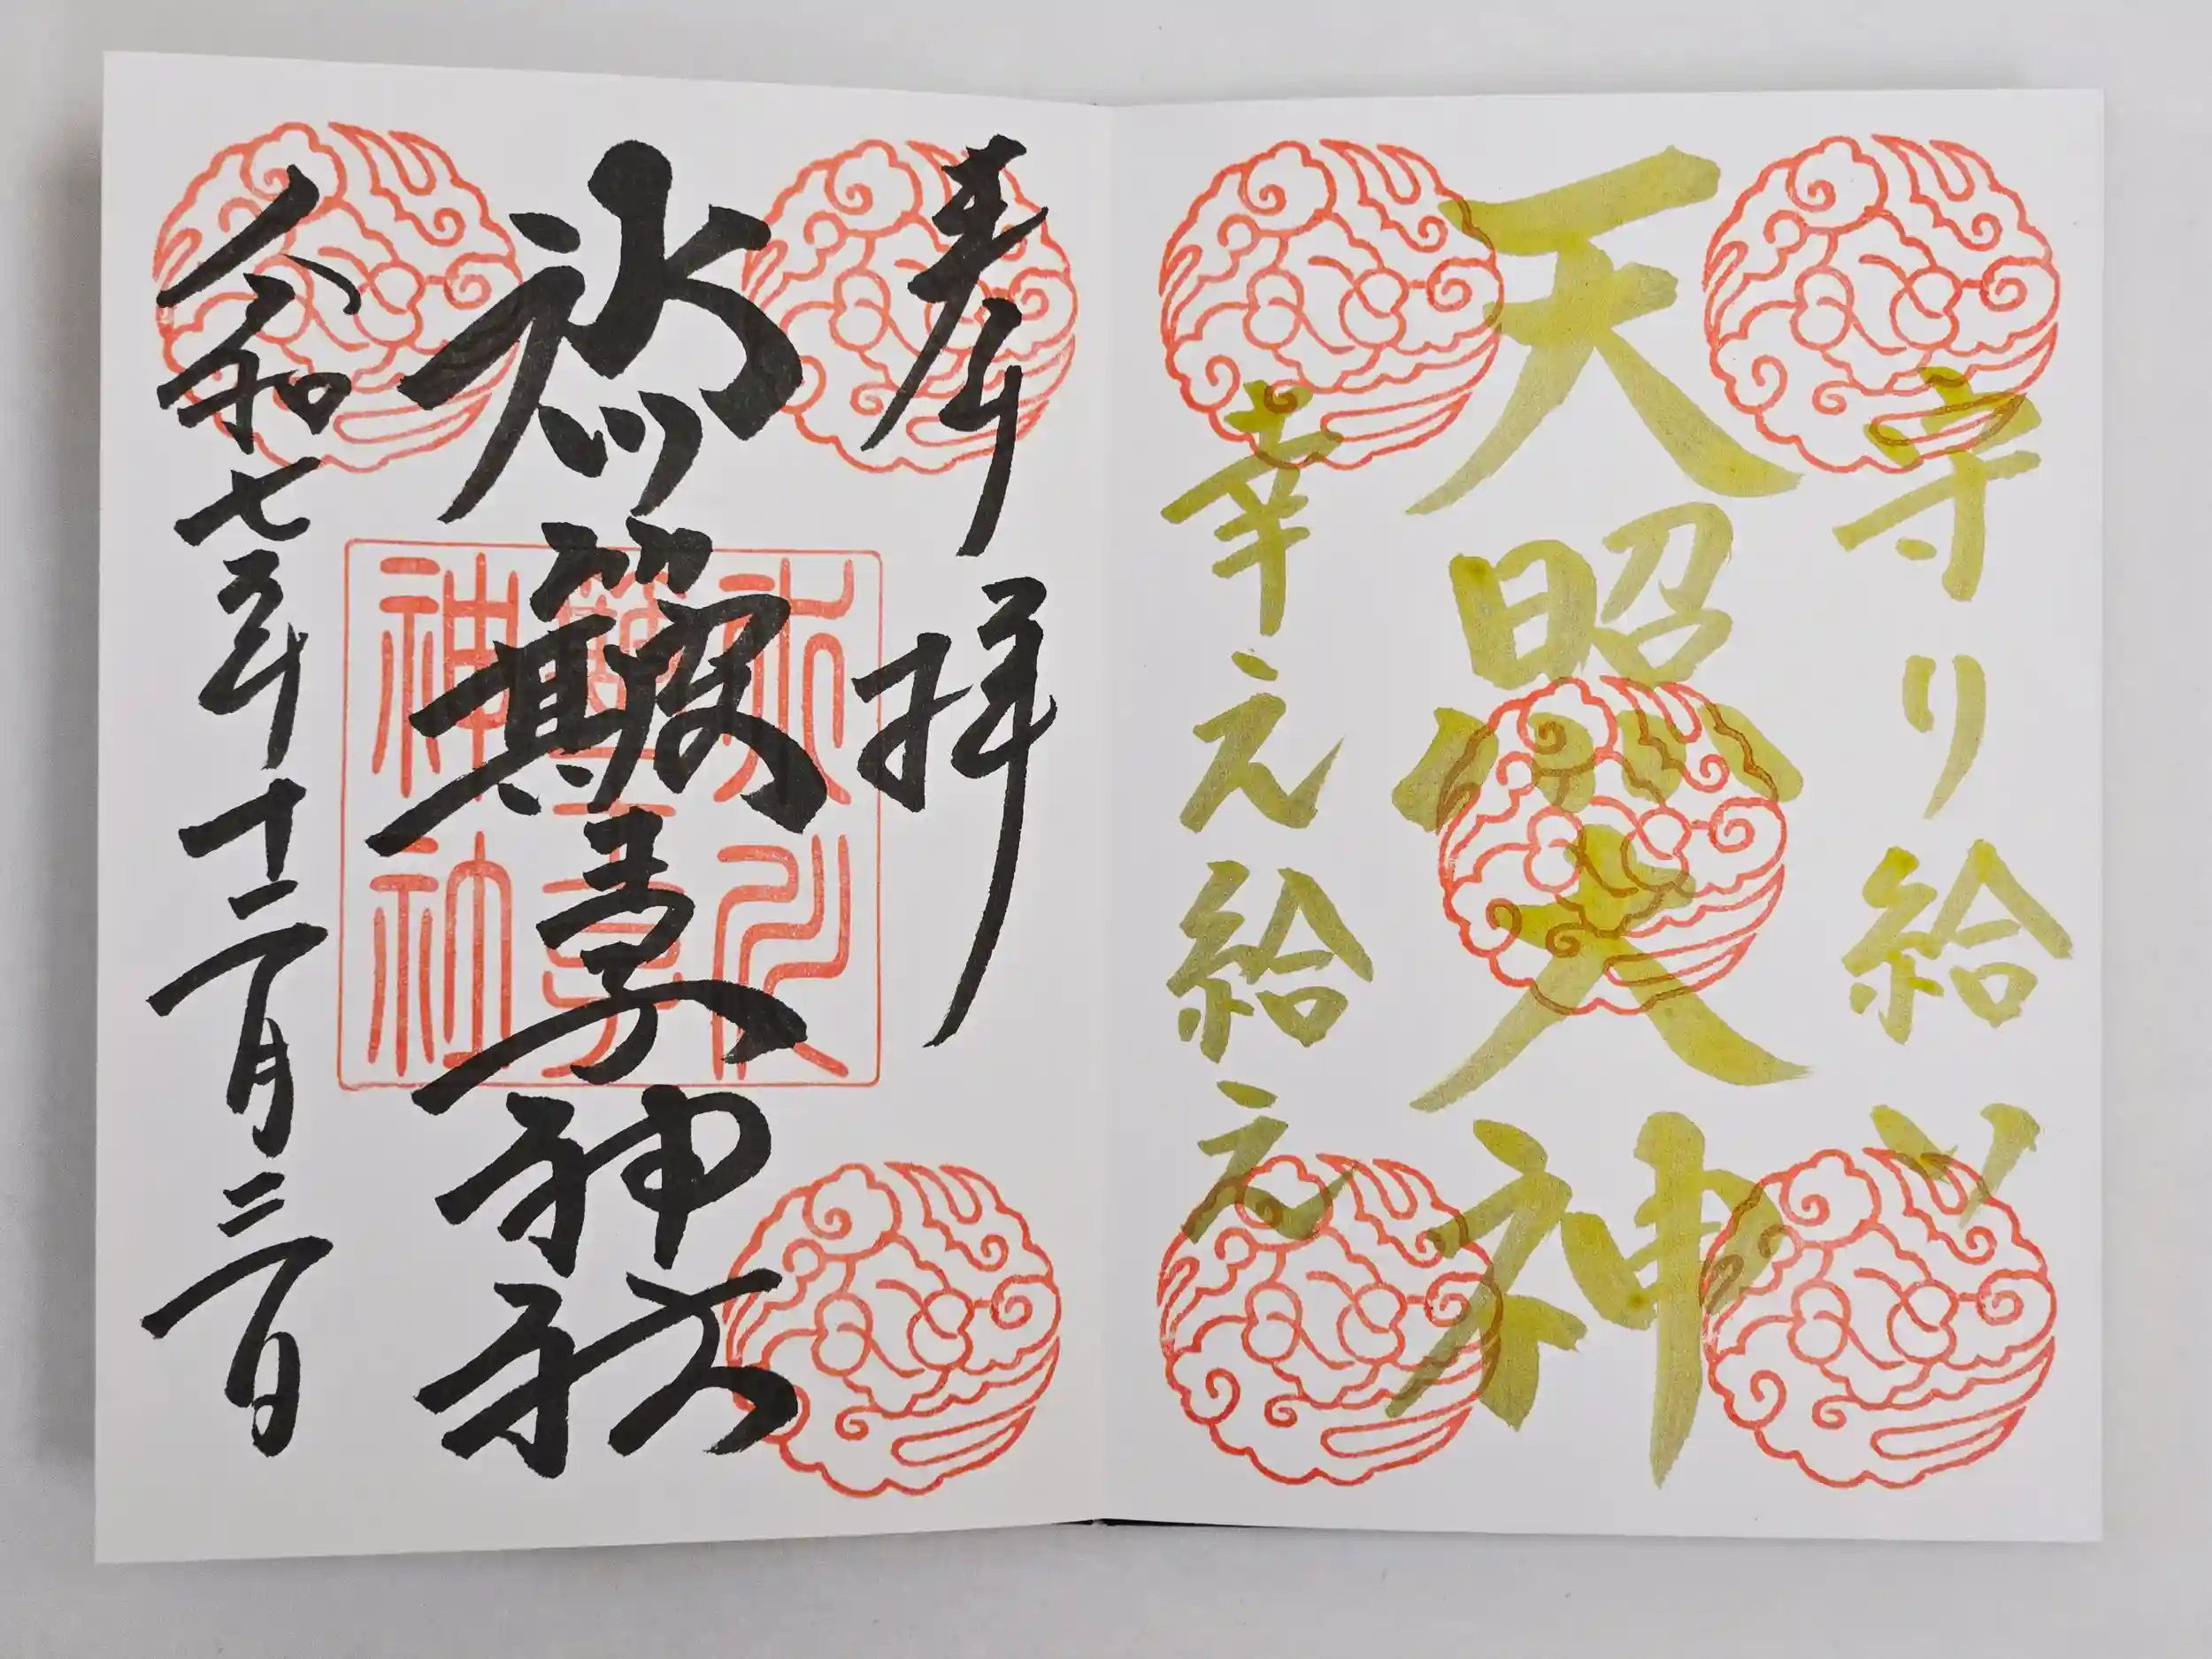 奉拝
氷川簸王子神社
令和七年十二月三日
氷川
簸王子
神社
守り給い
天照大神
幸え給え